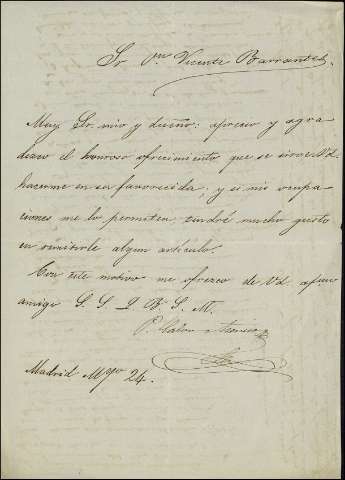 Sr. Dn. Vicente Barrantes.
Muy Sr. mio y dueño: aprecio y agra
dezco el honroso ofrecimiento que se sirve Vd.
hacerme en su favorecida, y si mis ocupa
ciones me lo permiten, tendré mucho gusto
en remitirle algun artículo.
Con este motivo me ofrezco de Vd. afmo
amigo S. S. Q. B. S. M.
P.
Madrid Myo 24.